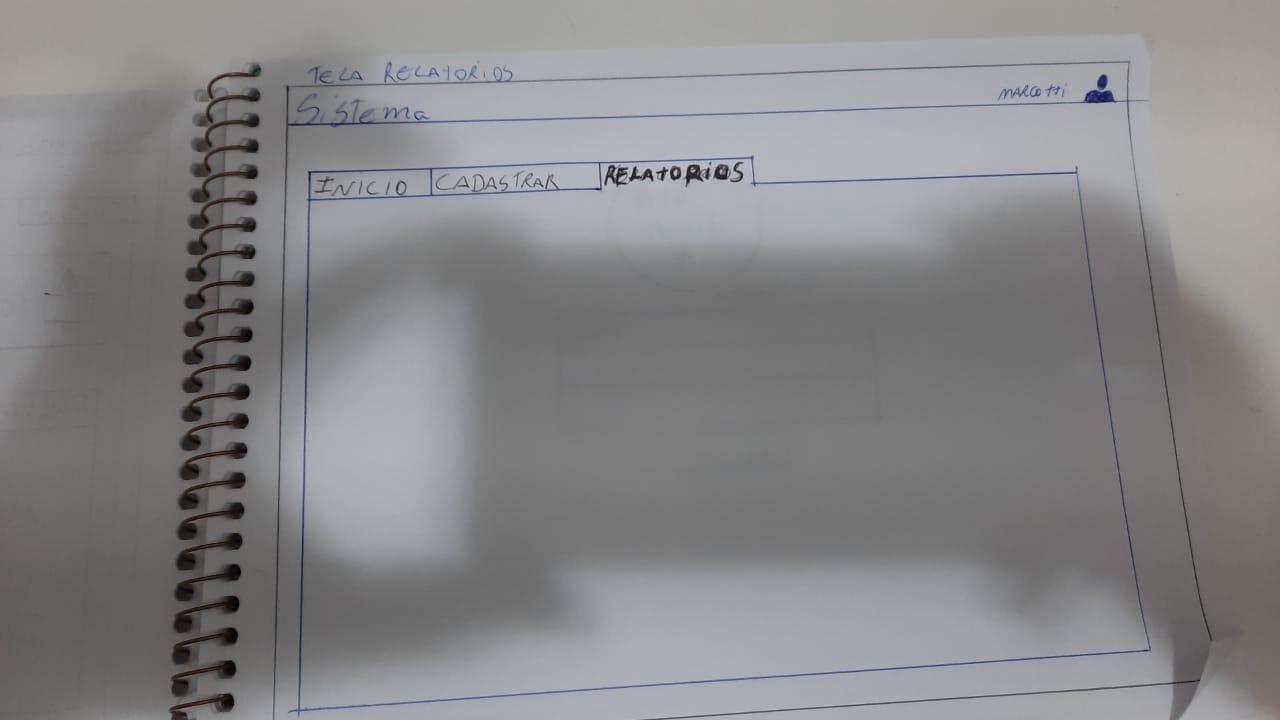 TELA RELATORIOS
Sistema
MARCOTTI
INICIO
CADASTRAR
RELATORIOS